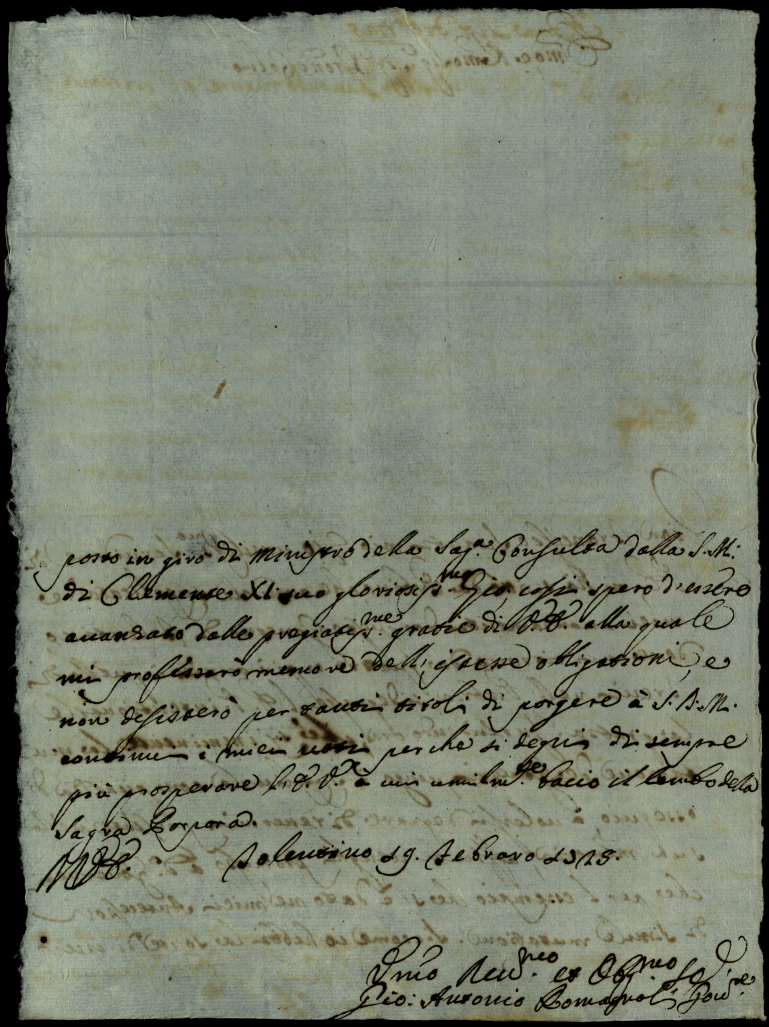 posto in giro di Ministro della Sag.ª Consulta dalla S. M:
di Clemente XI. suo gloriosiss.mo Zio, cossi spero d'essere
avanzato dalle pregiatiss.me gratie di V. E. alla quale
mi professarò memore dell'istesse obligationi, e
non desisterò per tanti titoli di porgere à S. D. M.
continui i miei voti perche si degni di sempre
più prosperare l'E. V.ª a cui umilm.te bacio il lembo della
Sagra Porpora.
Tolentino 19. Febraro 1728.
Rev.mo et Obl.mo
Gio: Antonio Romagnoli Gov.re